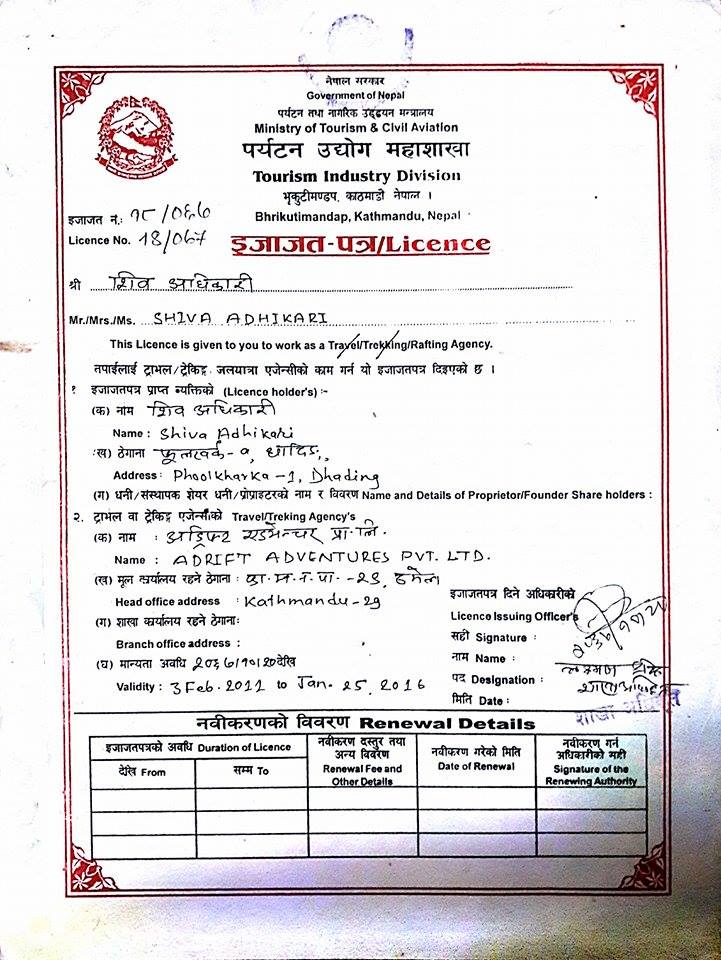 नेपाल सरकार
Government of Nepal
पर्यटन तथा नागरिक उड्डयन मन्त्रालय
Ministry of Tourism & Civil Aviation
पर्यटन उद्योग महाशाखा
Tourism Industry Division
भृकुटीमण्डप, काठमाडौं नेपाल ।
Bhrikutimandap, Kathmandu, Nepal
इजाजत नं.: १८/०६७
Licence No. 18/067
इजाजत-पत्र/Licence
श्री शिव अधिकारी
Mr./Mrs./Ms. SHIVA ADHIKARI
This Licence is given to you to work as a Travel/Trekking/Rafting Agency.
तपाईलाई ट्राभल/ट्रेकिङ्ग जलयात्रा एजेन्सीको काम गर्न यो इजाजतपत्र दिइएको छ ।
१ इजाजतपत्र प्राप्त व्यक्तिको (Licence holder's) :-
(क) नाम शिव अधिकारी
Name : Shiva Adhikari
(ख) ठेगाना फूलखर्क-१, धादिङ
Address : Phoolkharka-1, Dhading
(ग) धनी/संस्थापक शेयर धनी/प्रोप्राइटरको नाम र विवरण Name and Details of Proprietor/Founder Share holders :
२. ट्राभल वा ट्रेकिङ्ग एजेन्सीको Travel/Treking Agency's
(क) नाम : अड्रिफ्ट एडभेन्चर प्रा.लि.
Name : ADRIFT ADVENTURES PVT. LTD.
(ख) मूल कार्यालय रहने ठेगाना : का.म.न.पा.-२९, ठमेल
Head office address : Kathmandu-29
(ग) शाखा कार्यालय रहने ठेगानाः
Branch office address :
(घ) मान्यता अवधि २०६७/१०/२० देखि
Validity : 3 Feb. 2011 to Jan. 25, 2016
इजाजतपत्र दिने अधिकारीको
Licence Issuing Officer's
सही Signature :
नाम Name : लक्ष्मण
पद Designation : शाखा अधिकृत
मिति Date :
शाखा अधिकृत
नवीकरणको विवरण Renewal Details
इजाजतपत्रको अवधि Duration of Licence
देखि From
सम्म To
नवीकरण दस्तुर तथा
अन्य विवरण
Renewal Fee and
Other Details
नवीकरण गरेको मिति
Date of Renewal
नवीकरण गर्न
अधिकारीको सही
Signature of the
Renewing Authority